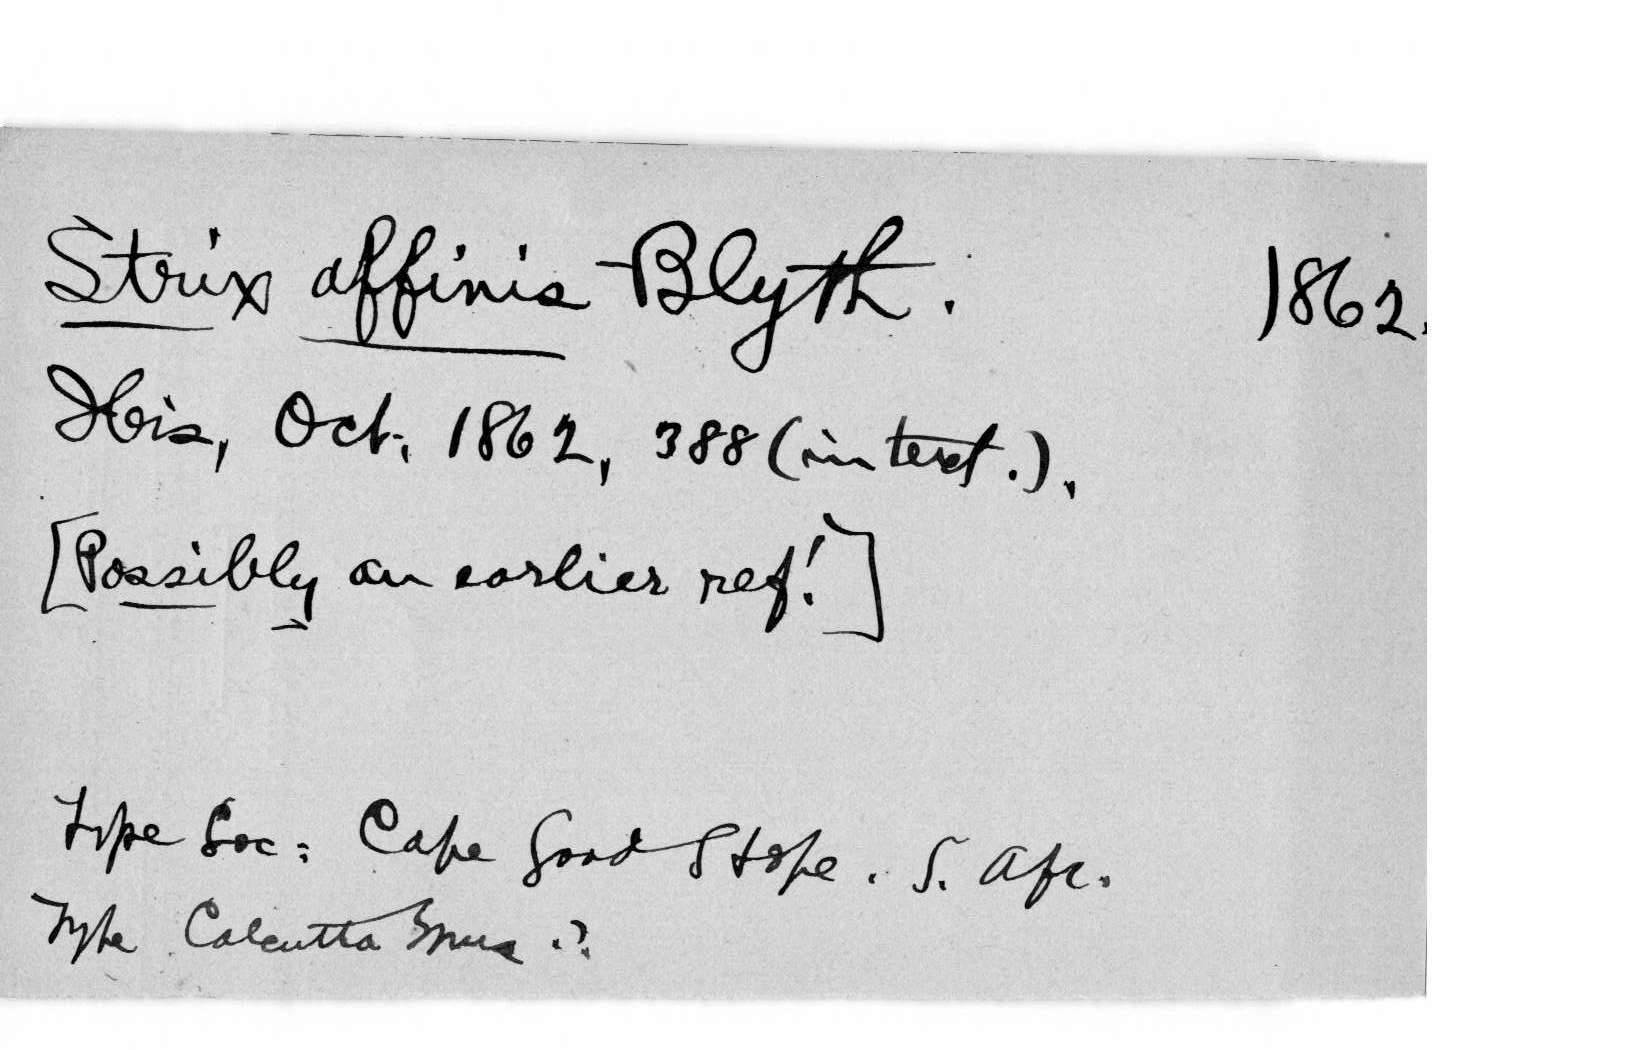 Strix affinis Blyth. 1862.
Ibis, Oct. 1862, 388 (in text.).
[Possibly an earlier ref!]
Type Loc: Cape Good Hope. S. Afr.
Type Calcutta Mus.?